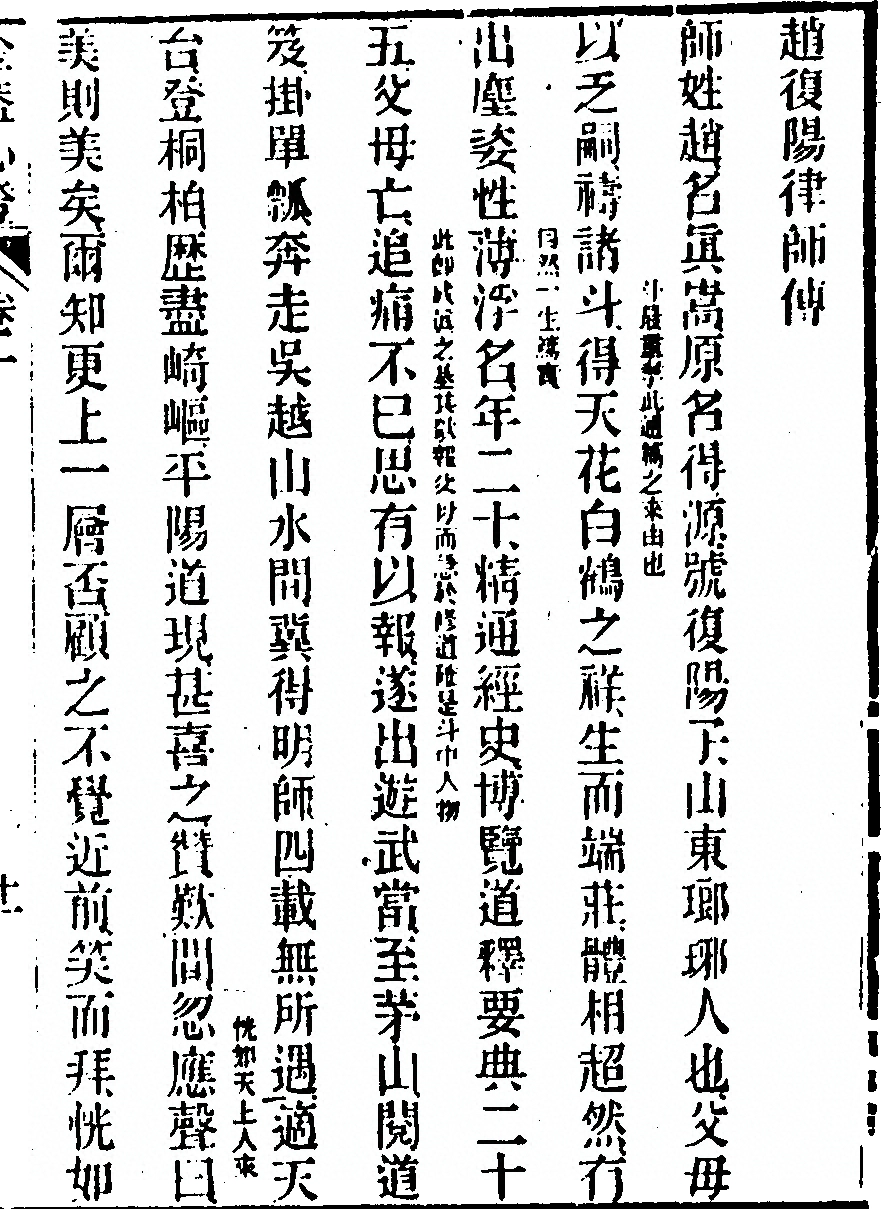 趙復陽律師傳
師姓趙名眞嵩原名得源號復陽子山東瑯琊人也父母
斗發靈孝此通稱之來由也
以乏嗣禱諸斗得天花白鶴之祥生而端莊體相超然有
自然一生
出塵姿性薄浮名年二十精通經史博覽道釋要典二十
此卽成道之基其欲報父母而急於修道確是斗中人物
五父母亡追痛不已思有以報遂出遊武當至茅山閱道
笈掛單瓢奔走吳越山水間冀得明師四載無所遇適天
恍如天上人來
台登桐柏歷盡崎嶇平陽道現甚喜之贊歎間忽應聲曰
美則美矣爾知更上一層否顧之不覺近前笑而拜恍如
金蓋心燈 卷一 十一